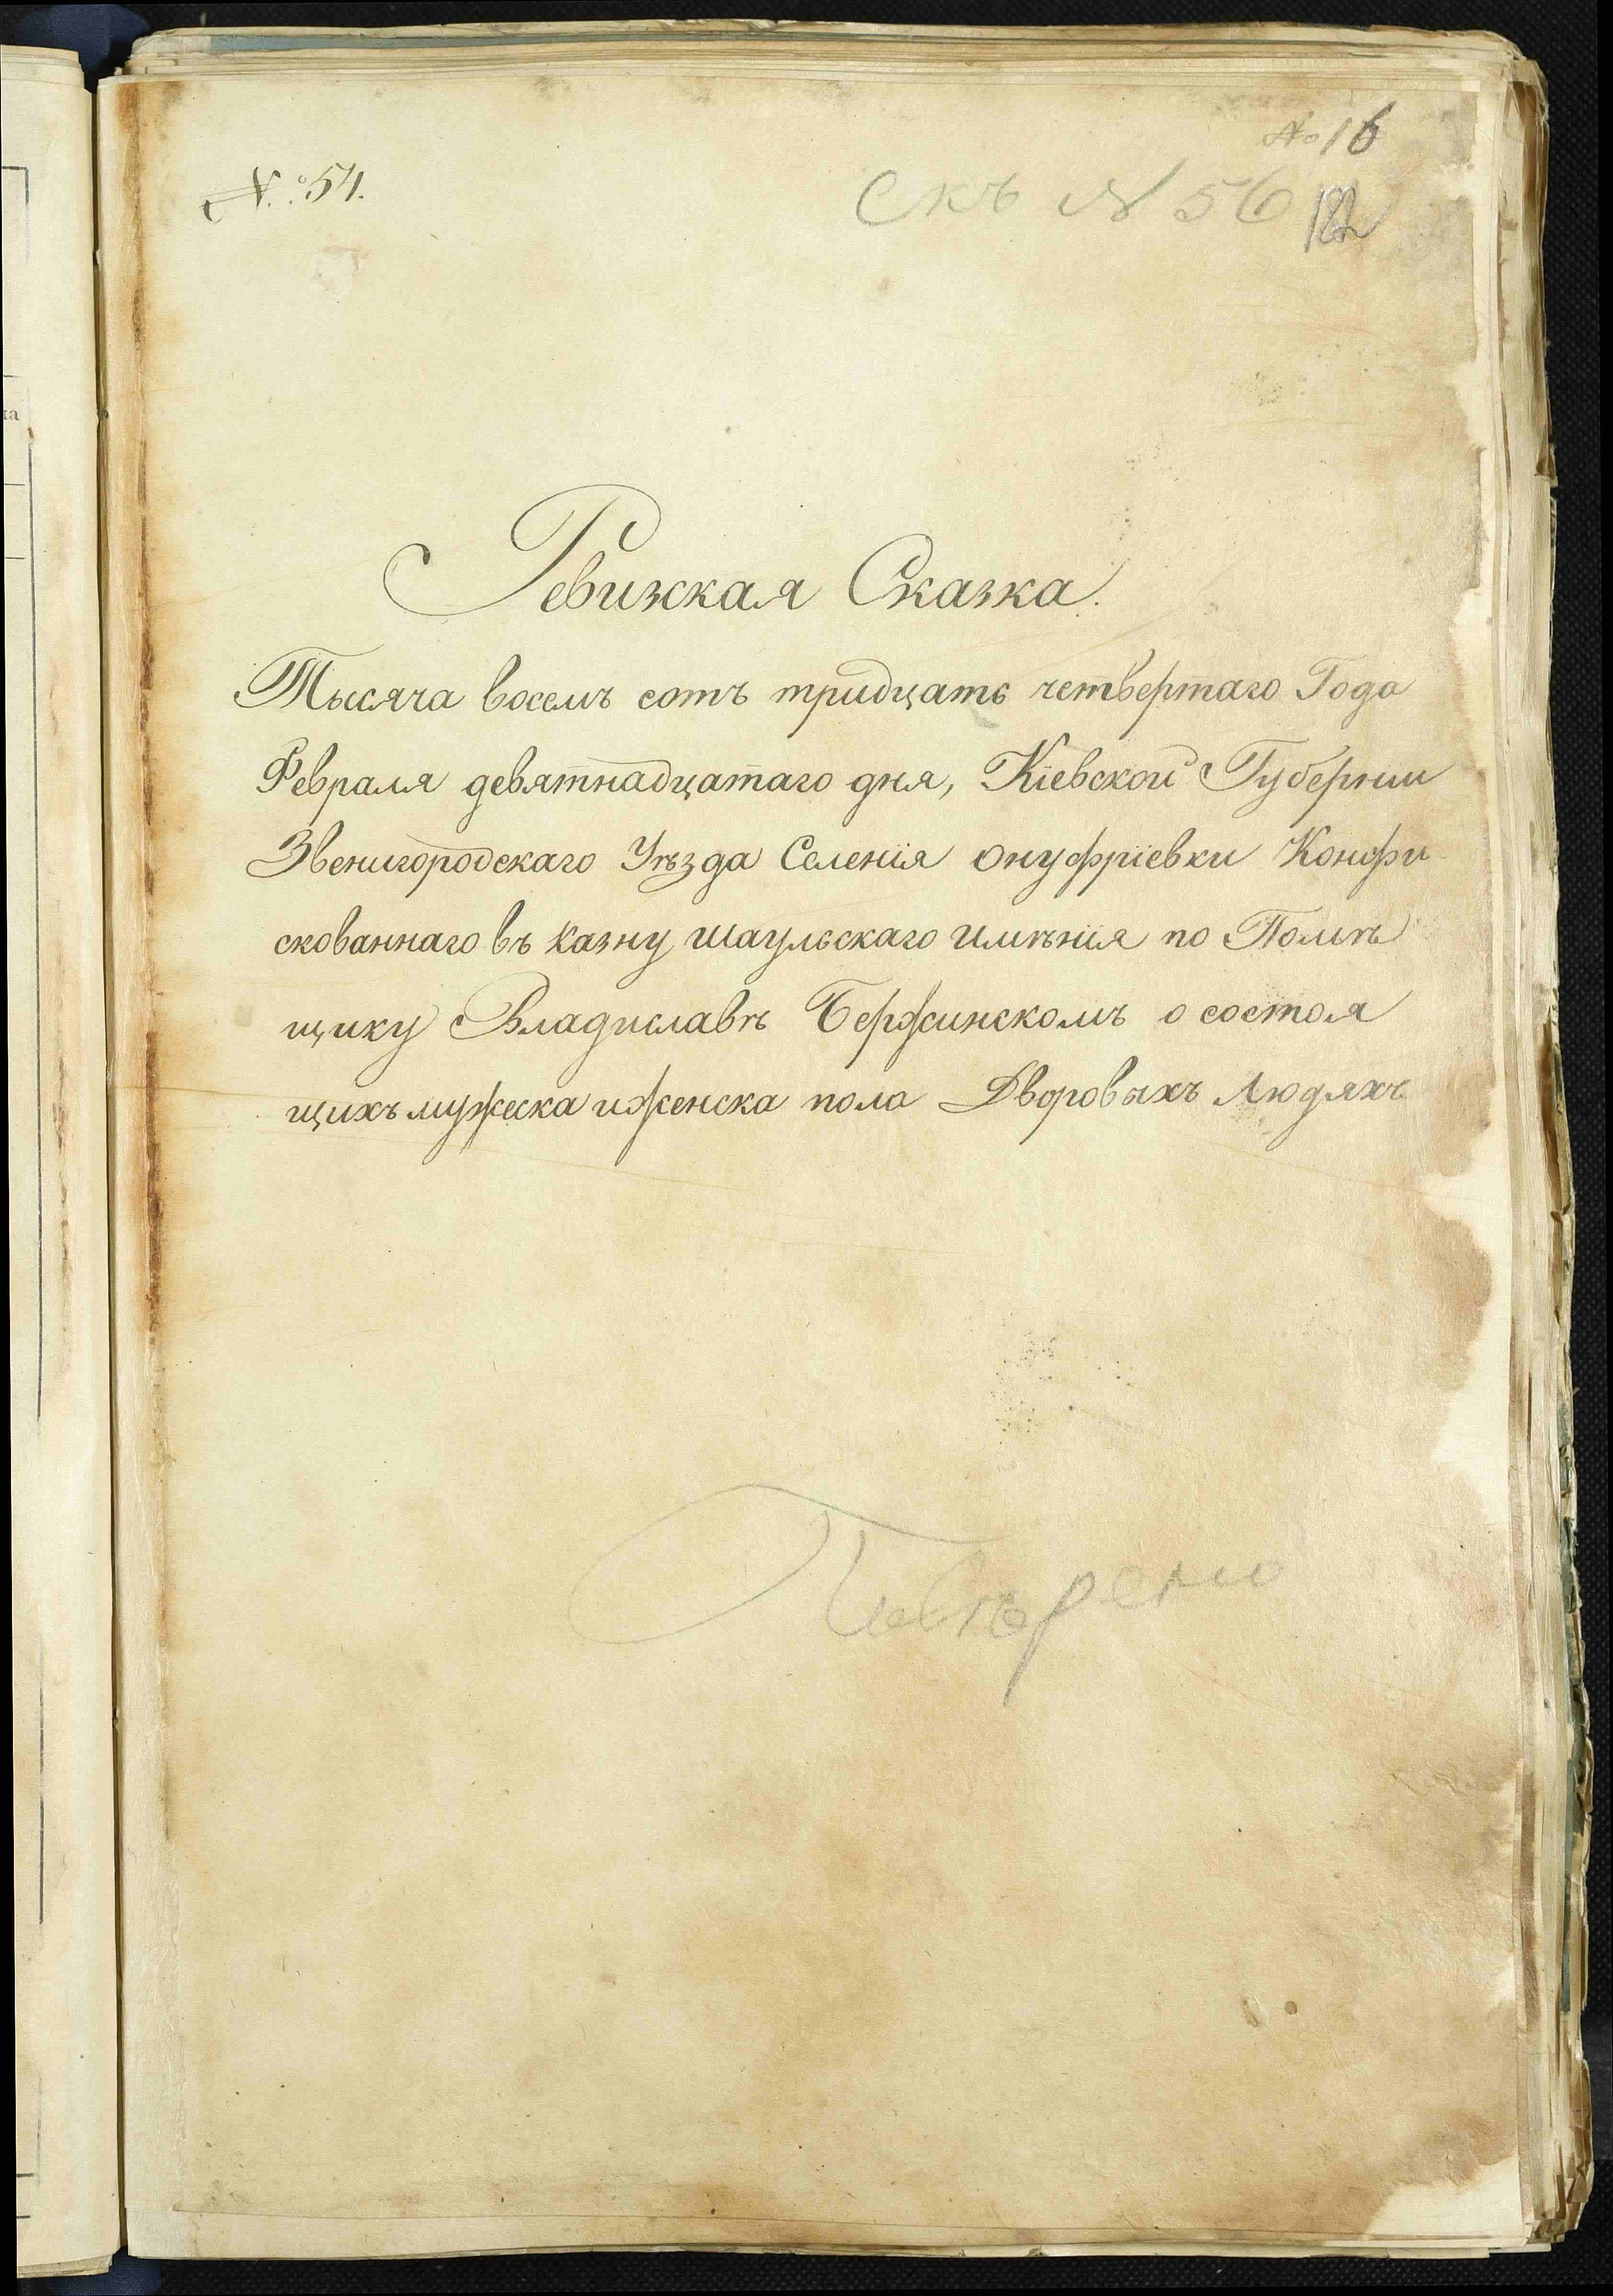 № 16
№ 54.
Скъ № 56
182
Ревизская Сказка.
Тысяча восемъ сотъ тридцать четвертаго Года
Февраля девятнадцатаго дня, Кіевской Губерніи
Звенигородскаго Уѣзда Селенія Онуфріевки Конфи
скованнаго въ казну Шаульскаго имѣнія по Помѣ
щику Владиславѣ Бержинскомъ о состоя
щихъ мужеска и женска пола Дворовыхъ Людяхъ
Повѣрено